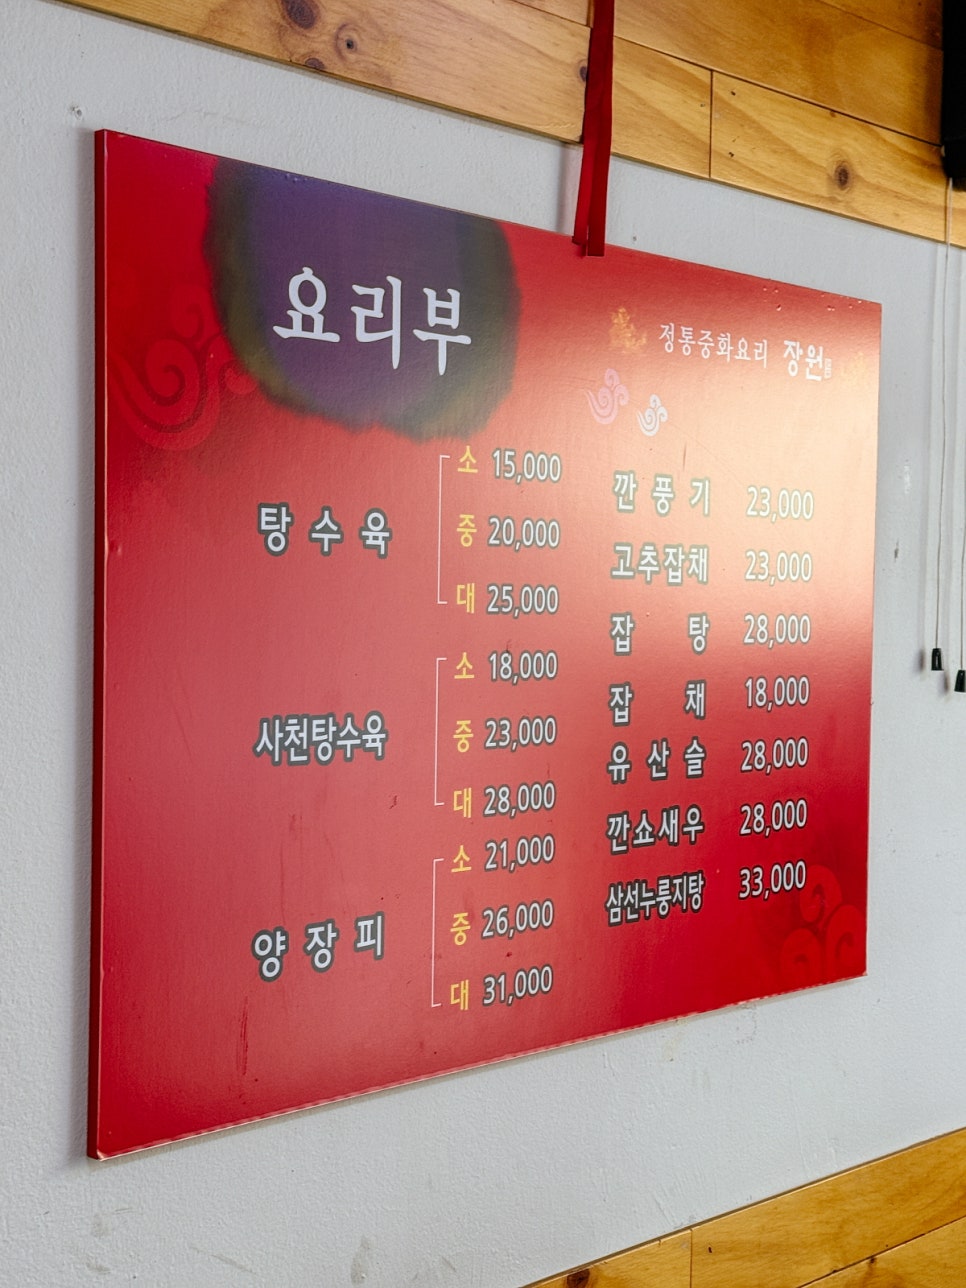 요리부
정통중화요리 장원
탕수육
소 15,000
중 20,000
대 25,000
사천탕수육
소 18,000
중 23,000
대 28,000
양장피
소 21,000
중 26,000
대 31,000
깐풍기 23,000
고추잡채 23,000
잡탕 28,000
잡채 18,000
유산슬 28,000
깐쇼새우 28,000
삼선누룽지탕 33,000